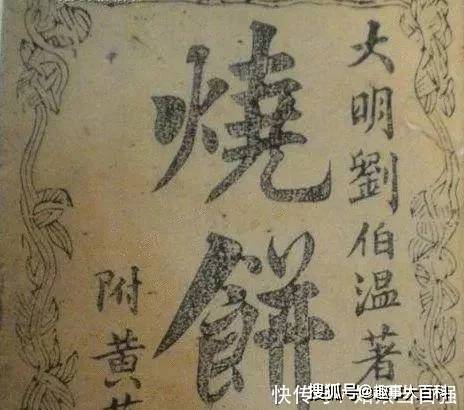 大明劉伯温著
燒餅
附黄
搜狐号@趣事大百科
快传号